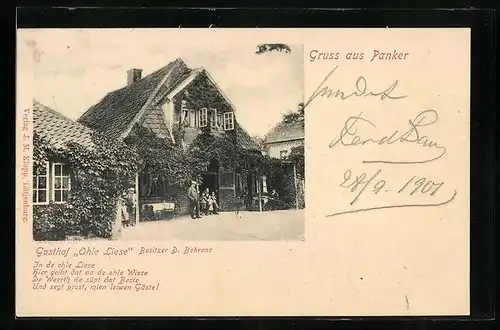 Gruss aus Panker
28/9. 1901
Gasthof „Ohle Liese“ Besitzer D. Behrens
In de ohle Liese
Hier geiht dat na de ohle Wiese
De Weerth de süpt dat Beste
Und segt prost, mien leiwen Gäste!
Verlag J. M. Klopp, Lütjenburg.